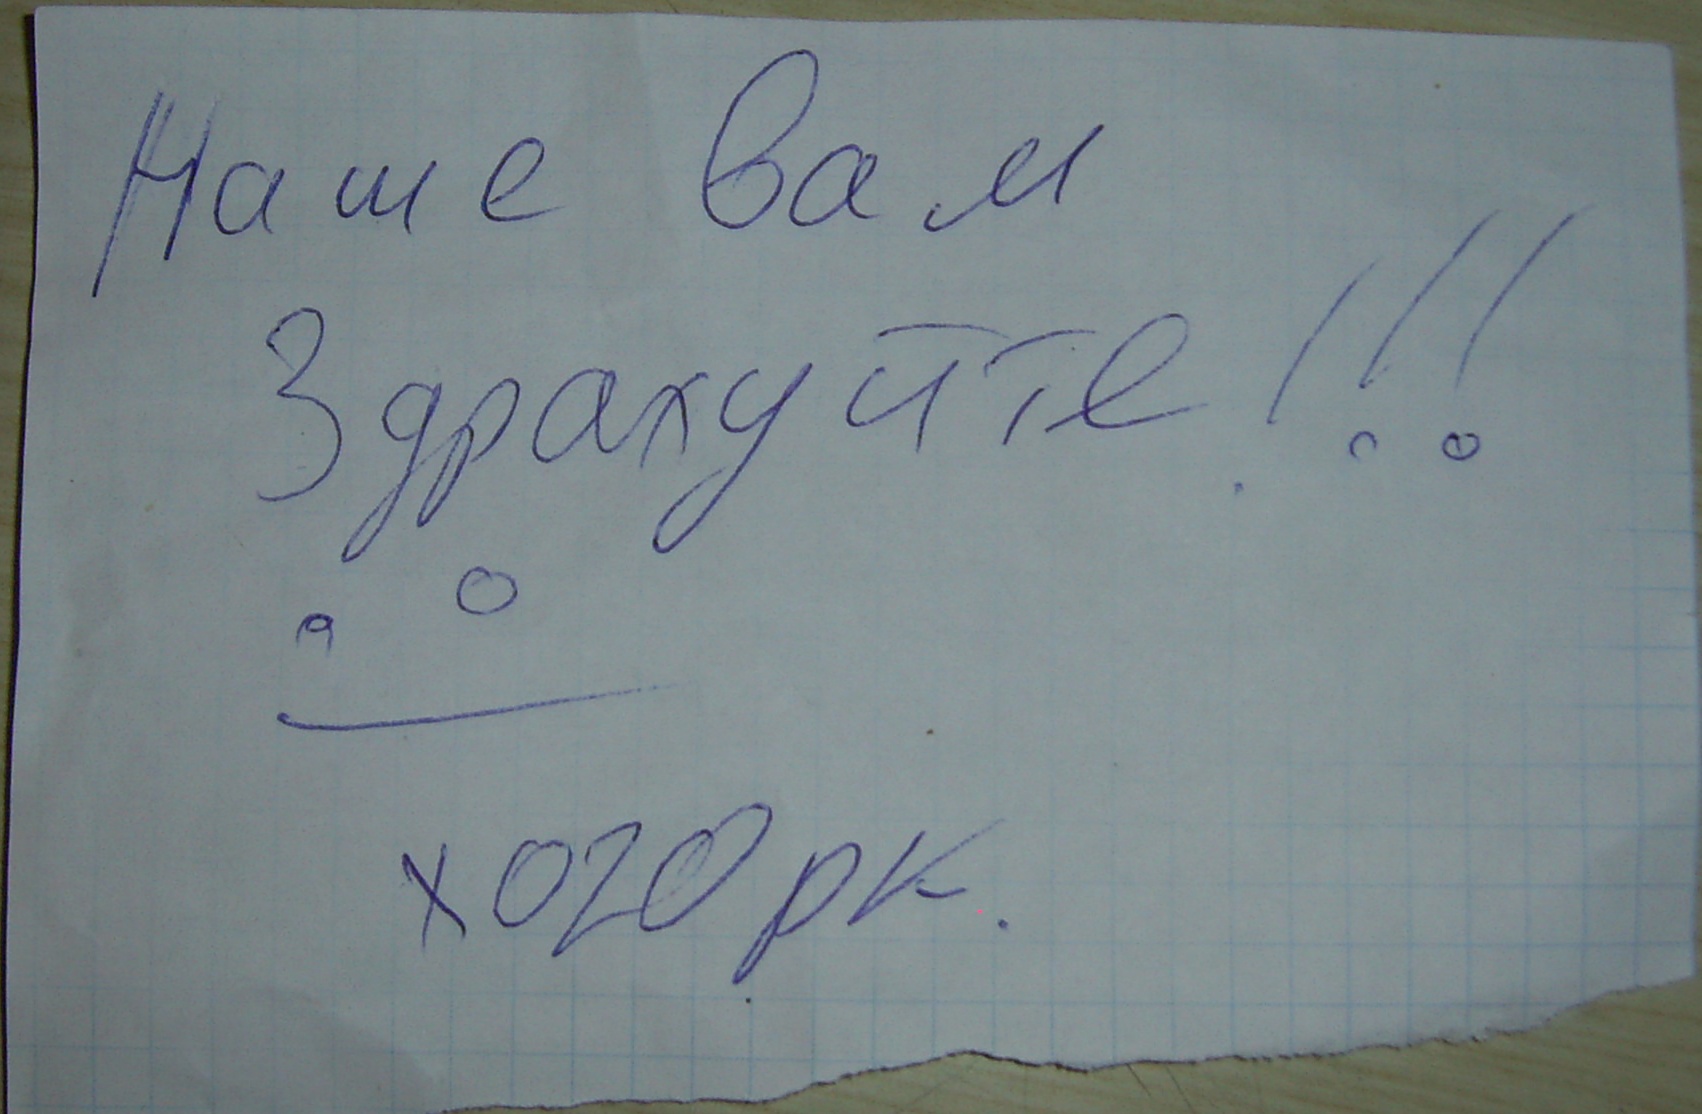 Наше вам
Здрахуйте!!!
хогорк.